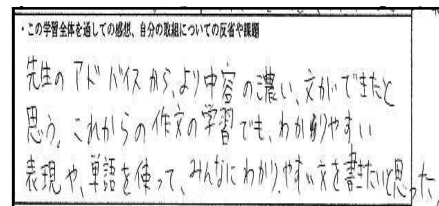 ・この学習全体を通しての感想、自分の取組についての反省や課題
先生のアドバイスから、より中容の濃い、文がができたと
思う。これからの作文の学習でも、わかりやすい
表現や、単語を使って、みんなにわかりやすい文を書きたいと思った。